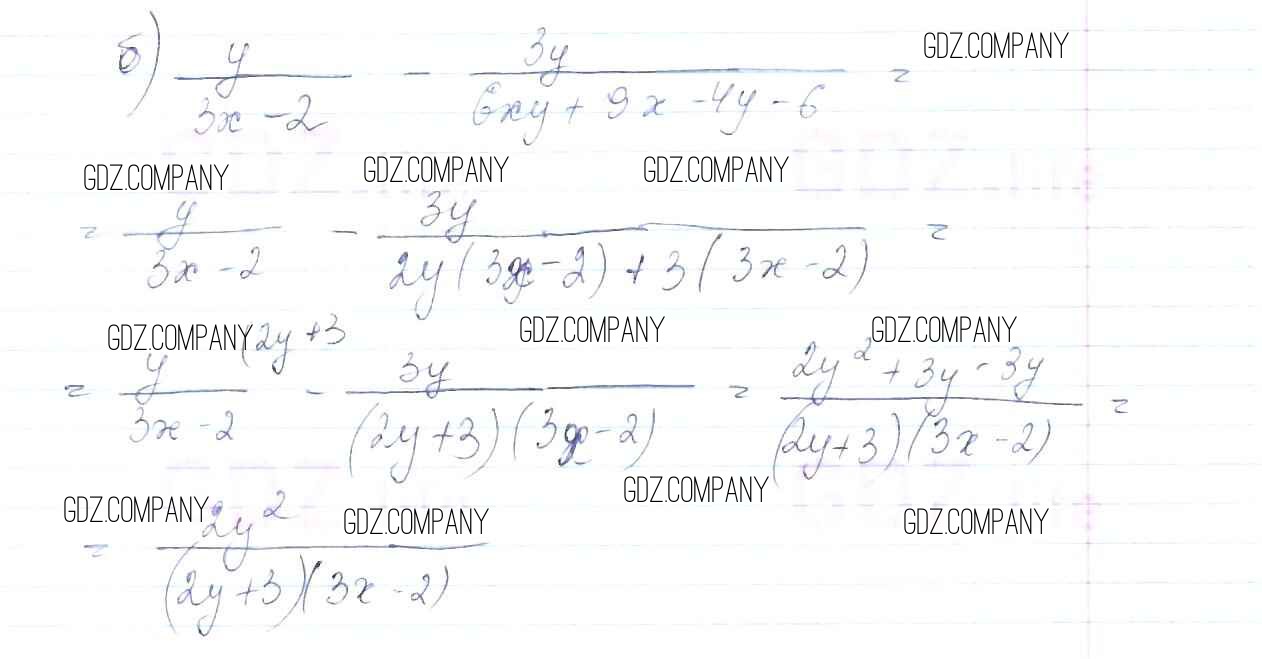 б) y/(3x - 2) - 3y/(6xy + 9x - 4y - 6) = GDZ.COMPANY
GDZ.COMPANY GDZ.COMPANY GDZ.COMPANY
= y/(3x - 2) - 3y/(2y(3x - 2) + 3(3x - 2)) =
GDZ.COMPANY (2y + 3 GDZ.COMPANY GDZ.COMPANY
= y/(3x - 2) - 3y/((2y + 3)(3x - 2)) = (2y² + 3y - 3y)/((2y + 3)(3x - 2)) =
GDZ.COMPANY GDZ.COMPANY GDZ.COMPANY GDZ.COMPANY
= 2y²/((2y + 3)(3x - 2))